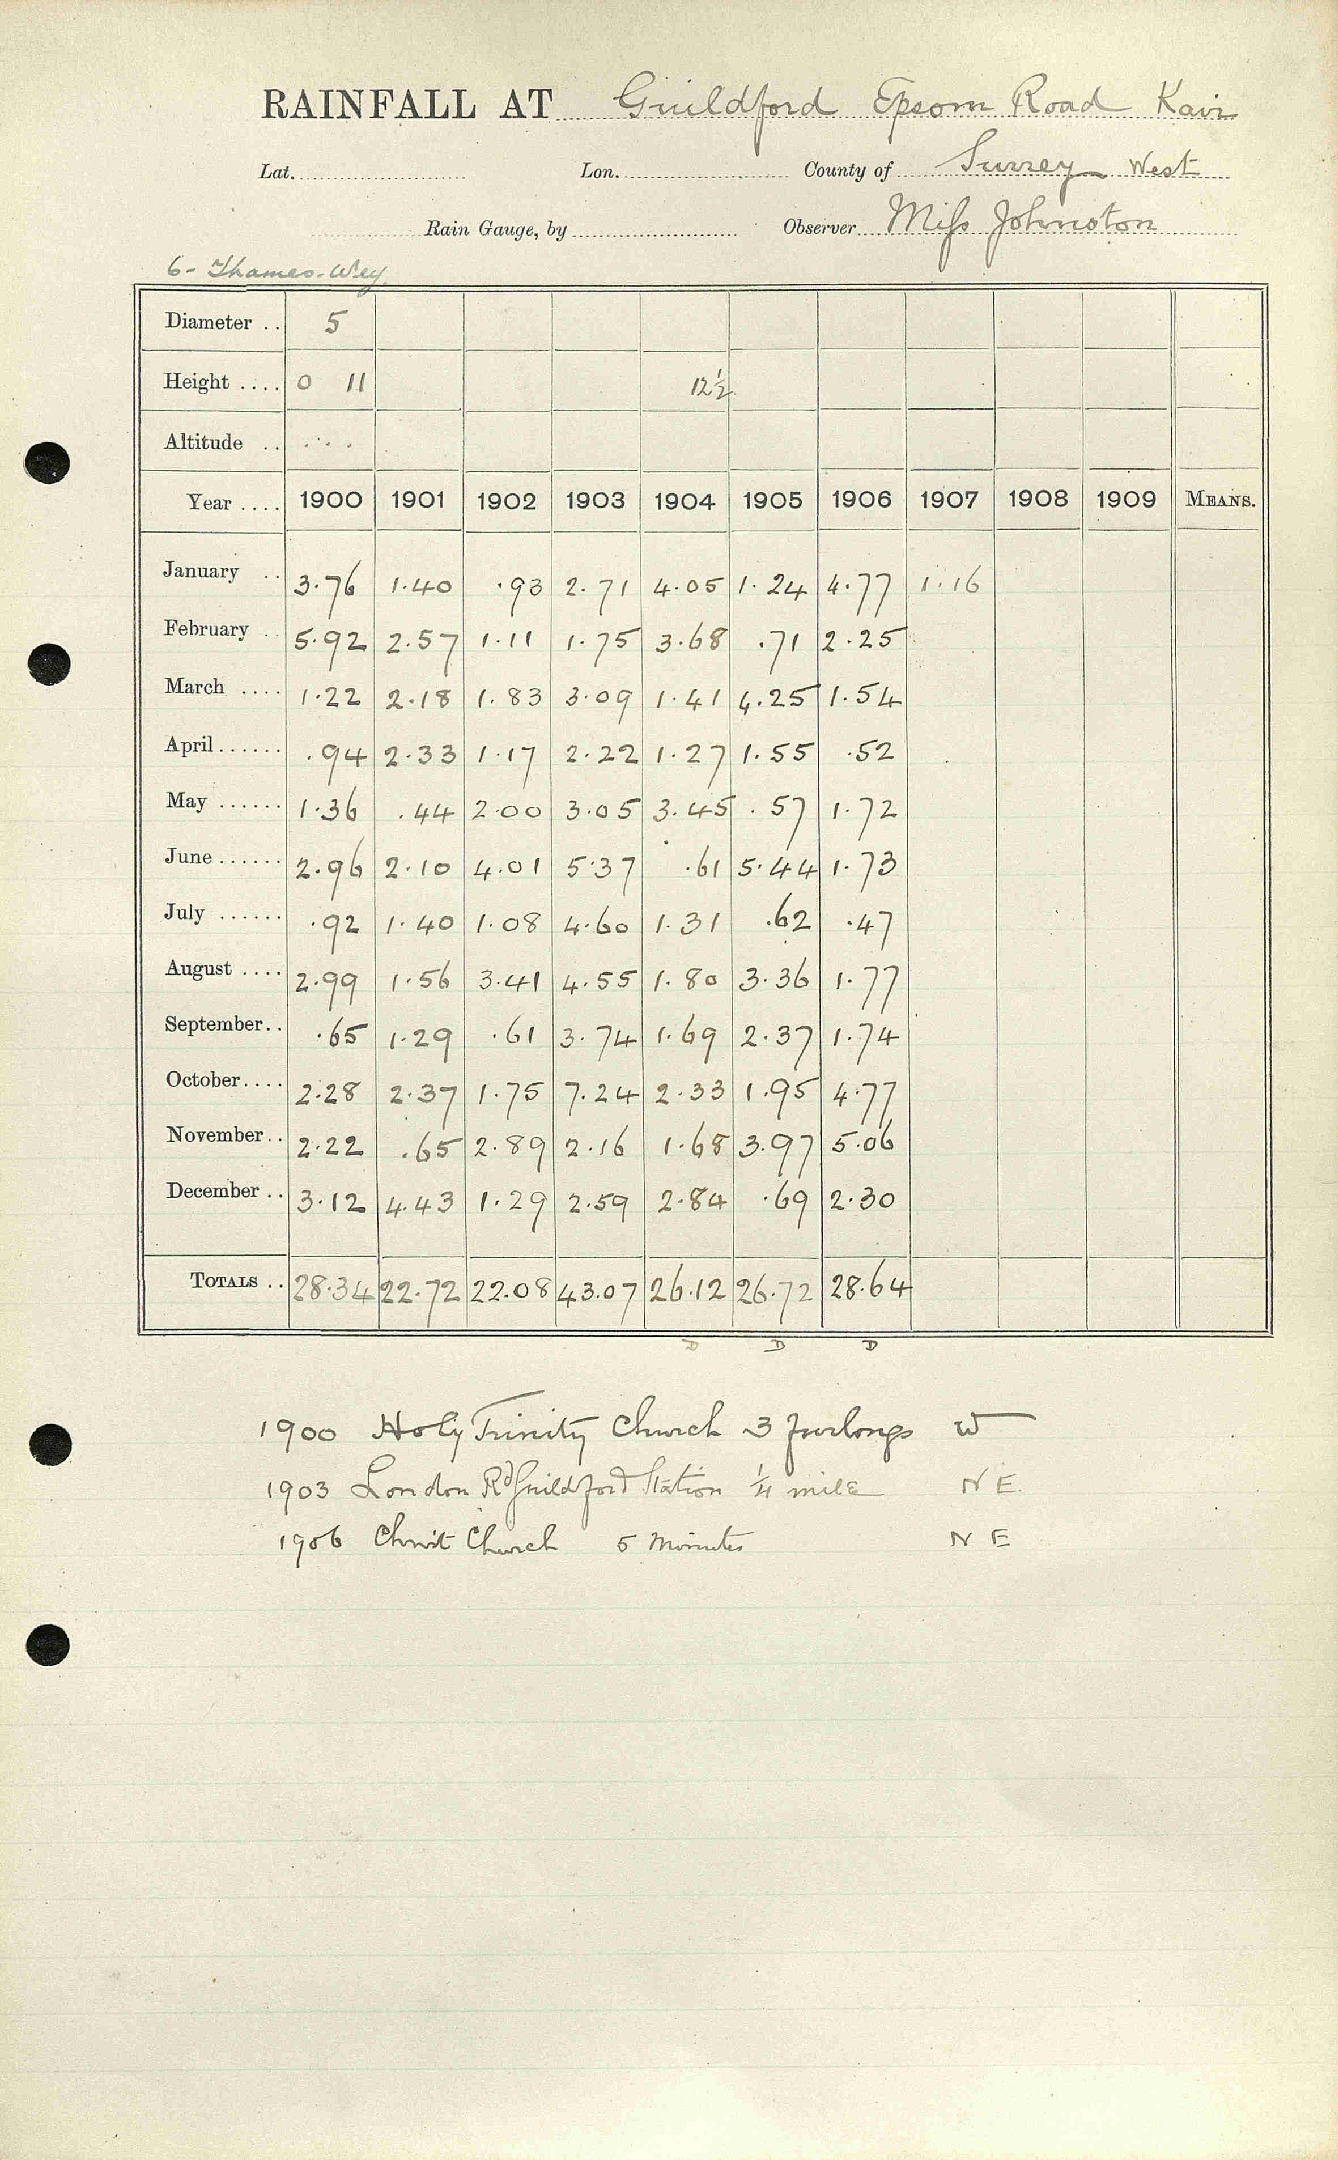 RAINFALL AT Guildford Epsom Road
Lat. Lon. County of Surrey West
Rain Gauge, by Observer Miss Johnston
6 - Thames - Wey
Diameter .. 5
Height .... 0 11 12½
Altitude ..
Year .... 1900 1901 1902 1903 1904 1905 1906 1907 1908 1909 MEANS.
January .. 3.76 1.40 .93 2.71 4.05 1.24 4.77 1.16
February .. 5.92 2.57 1.11 1.75 3.68 .71 2.25
March .... 1.22 2.18 1.83 3.09 1.41 4.25 1.54
April ...... .94 2.33 1.17 2.22 1.27 1.55 .52
May ...... 1.36 .44 2.00 3.05 3.45 .57 1.72
June ...... 2.96 2.10 4.01 5.37 .61 5.44 1.73
July ...... .92 1.40 1.08 4.60 1.31 .62 .47
August .... 2.99 1.56 3.41 4.55 1.80 3.36 1.77
September.. .65 1.29 .61 3.74 1.69 2.37 1.74
October.... 2.28 2.37 1.75 7.24 2.33 1.95 4.77
November.. 2.22 .65 2.89 2.16 1.68 3.97 5.06
December .. 3.12 4.43 1.29 2.59 2.84 .69 2.30
TOTALS .. 28.34 22.72 22.08 43.07 26.12 26.72 28.64
D D D
1900 Holy Trinity Church 3 furlongs W
1903 London Rd Guildford Station ¼ mile N E
1906 Christ Church 5 minutes N E